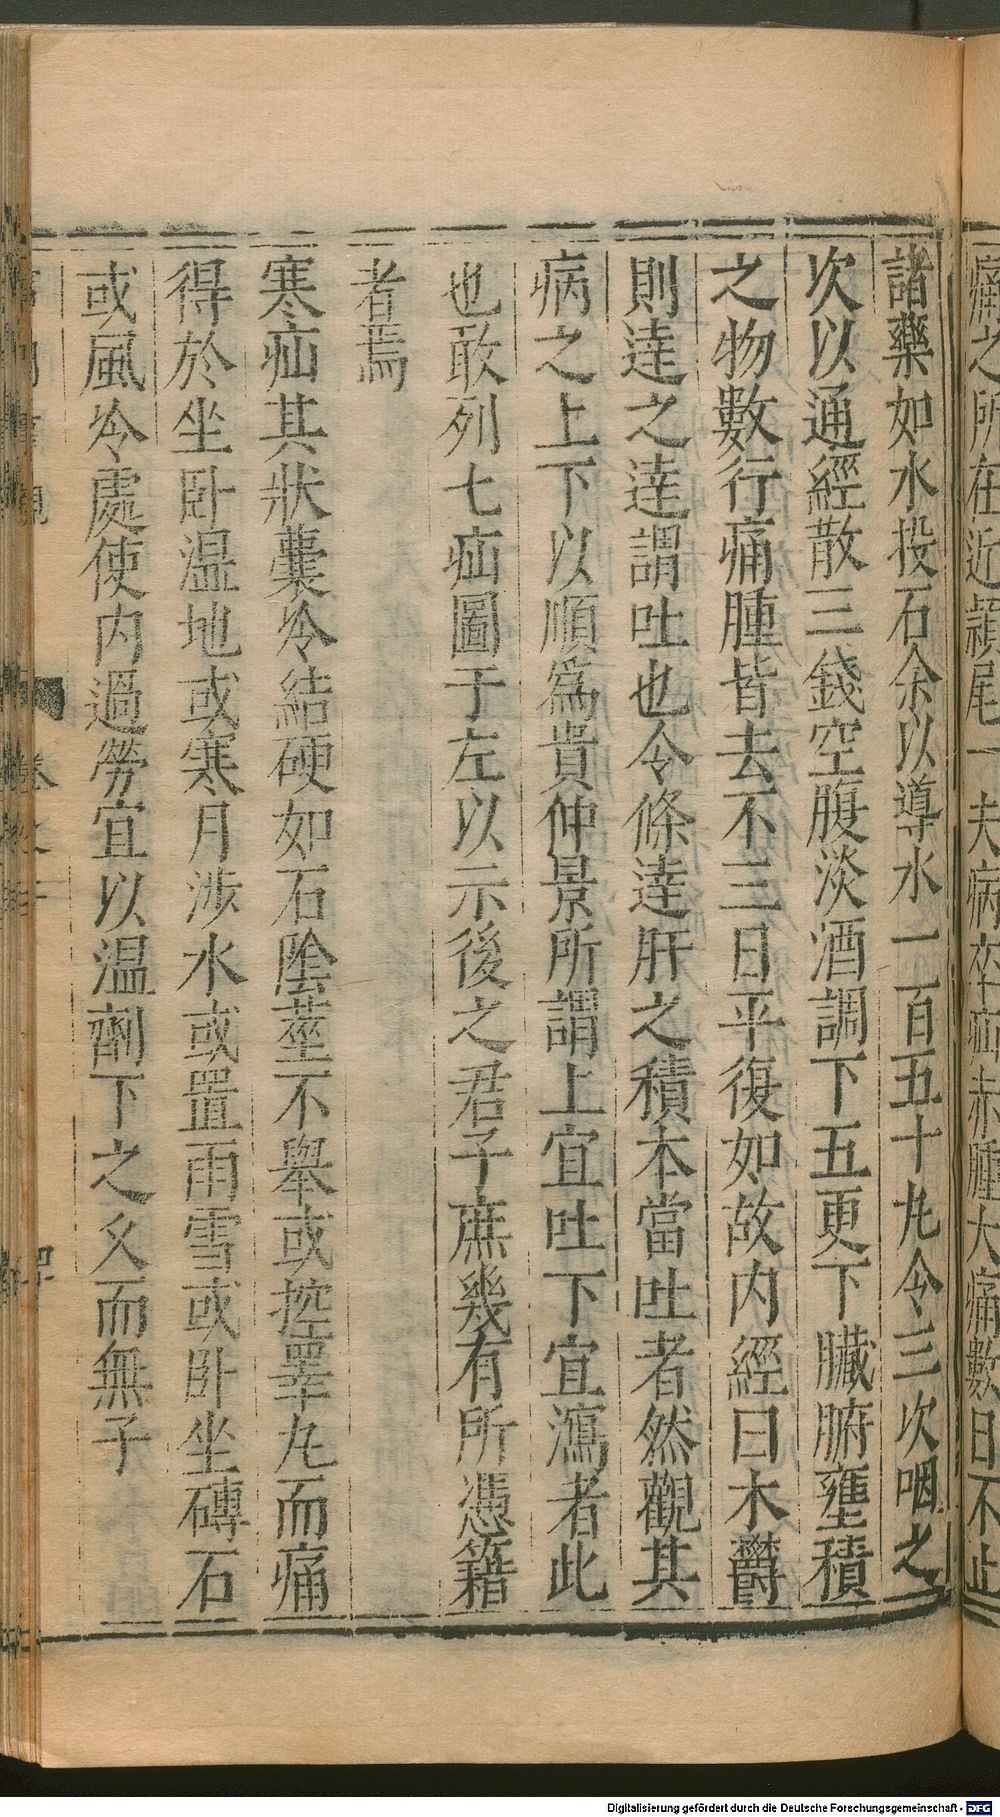 痛之所在近頴尾一夫病卒疝赤腫大痛數日不止
諸藥如水投石余以導水一百五十丸令三次咽之
次以通經散三錢空腹淡酒調下五更下臟腑壅積
之物數行痛腫皆去不三日平復如故内經曰木鬱
則達之達謂吐也令條達肝之積本當吐者然觀其
病之上下以順爲貴仲景所謂上宜吐下宜瀉者此
也敢列七疝圖于左以示後之君子庶幾有所憑籍
者焉
寒疝其狀囊冷結硬如石陰莖不舉或控睪丸而痛
得於坐卧温地或寒月涉水或置雨雪或卧坐磚石
或風冷處使内過勞宜以温劑下之久而無子
Digitalisierung gefördert durch die Deutsche Forschungsgemeinschaft - DFG